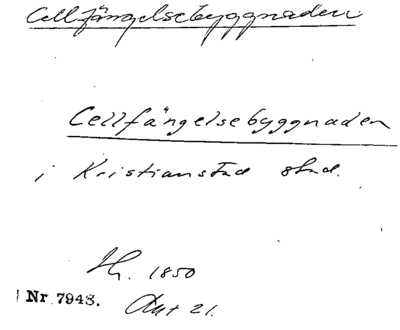 Cellfängelsebyggnaden
Cellfängelsebyggnaden
i Kristianstad stad.
1850
Nr 7943.
21.